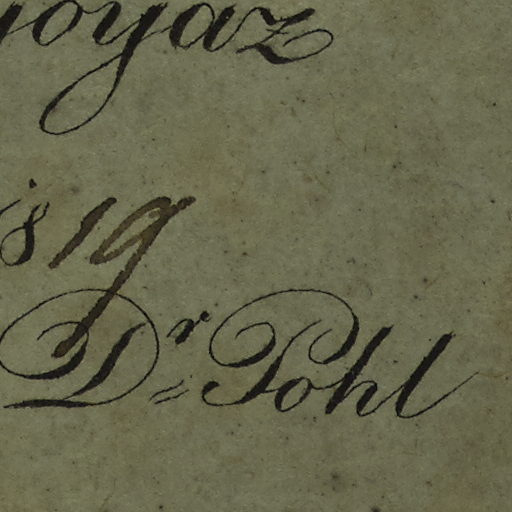 Goyaz
1819
Dr Pohl